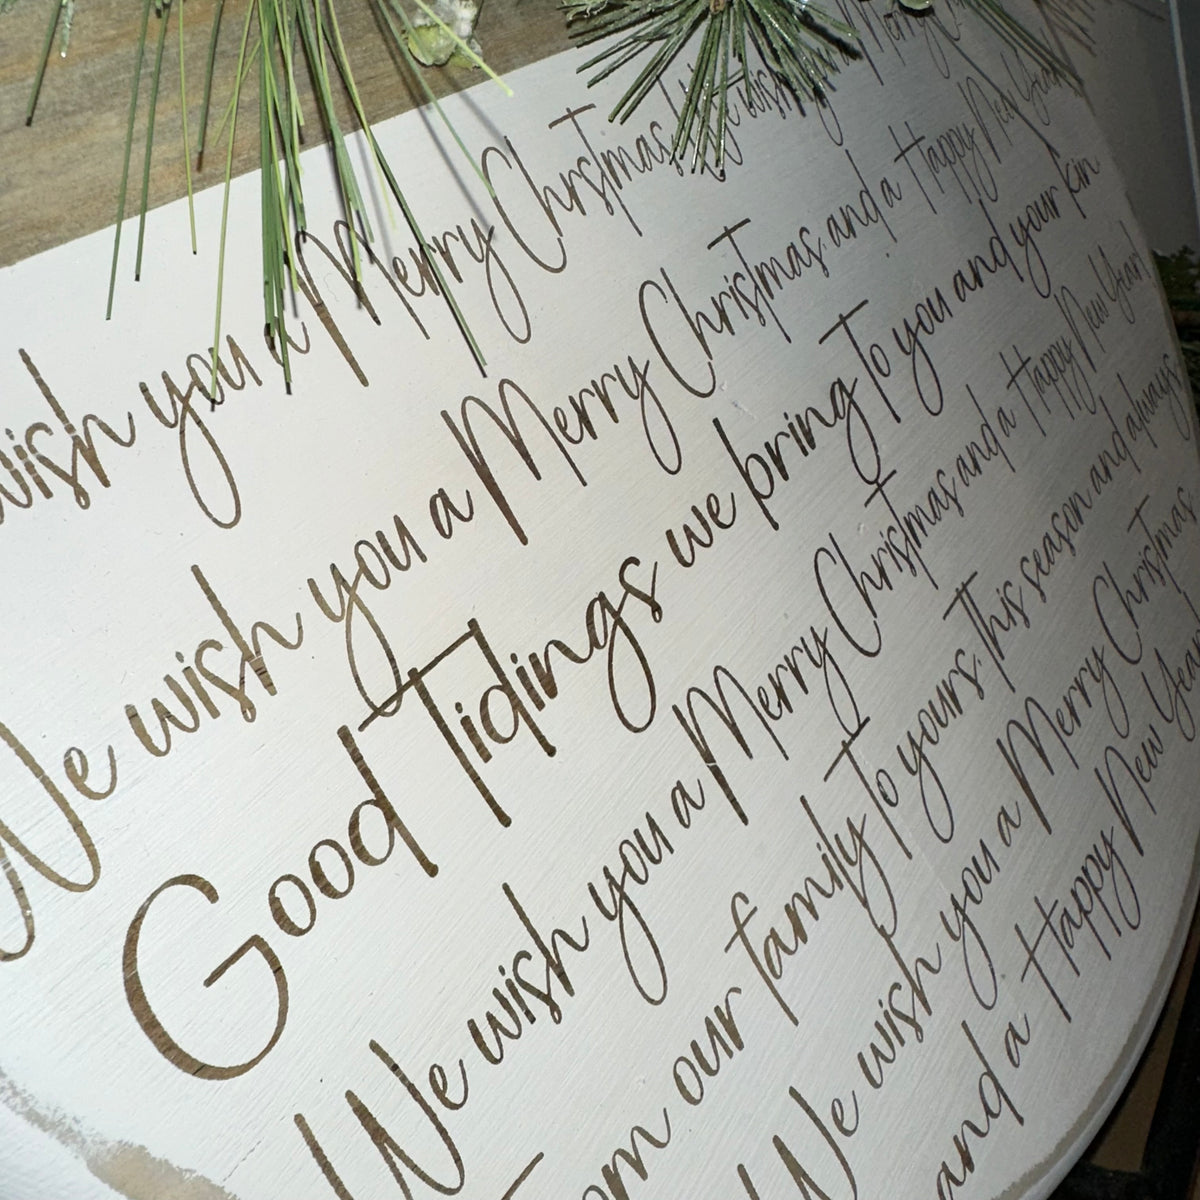 wish you a Merry Christmas, We wish you a Merry
We wish you a Merry Christmas, and a Happy New Year
Good Tidings we bring To you and your kin
We wish you a Merry Christmas and a Happy New Year!
our family To yours, This season and always
We wish you a Merry Christmas
and a Happy New Year